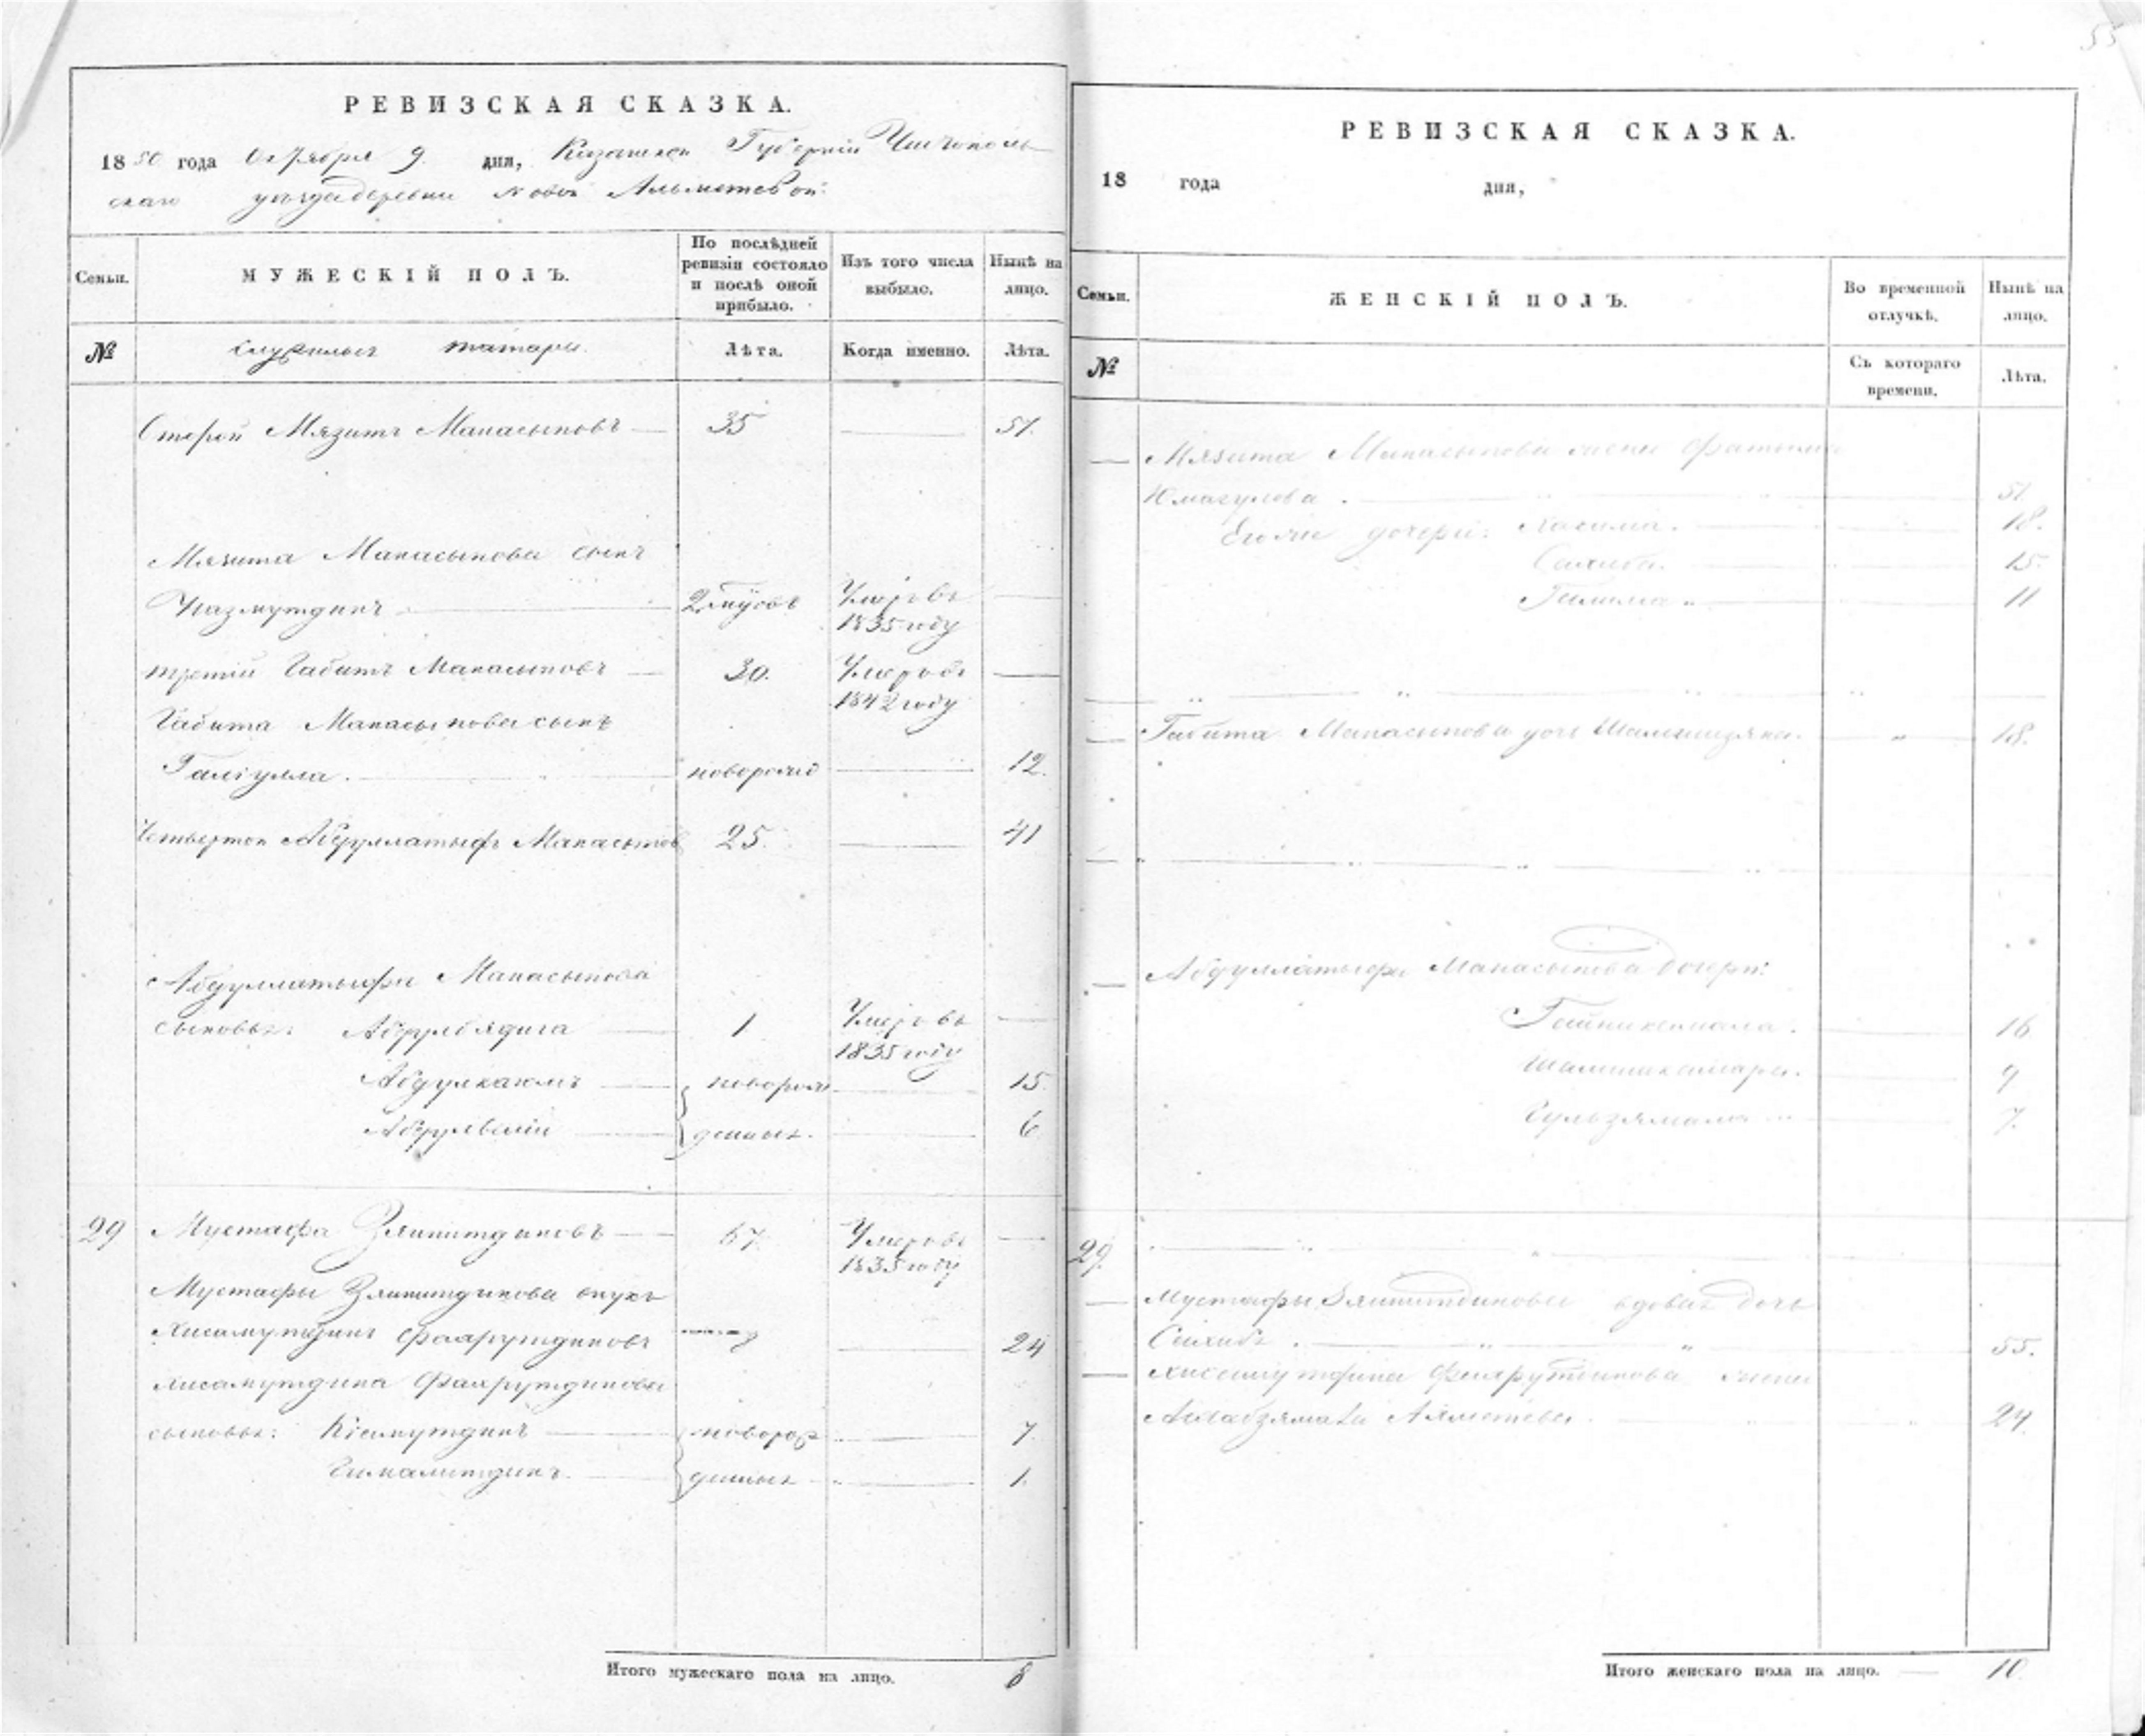 55
РЕВИЗСКАЯ СКАЗКА.
1850 года Октября 9. дня, Казанской Губерніи Чистополь-
скаго уезда деревни Новой Альметевой:
Семьи.
МУЖЕСКІЙ ПОЛЪ.
По послѣдней ревизіи состояло и послѣ оной прибыло.
Изъ того числа выбыло.
Нынѣ на лицо.
№
татары.
Лѣта.
Когда именно.
Лѣта.
Второй Мязитъ Манасыповъ 35 51.
Мязита Манасыпова сынъ
Умеръ въ
1835 году
третій Габитъ Манасыповъ 30. Умеръ въ
1842 году
Габита Манасыпова сынъ
Галіулла. новорожд 12.
Четвертой Абдуллатыфъ Манасыповъ 25. 41
Абдуллатыфа Манасыпова
сыновья: 1 Умеръ въ
1835 году
Абдулкаюмъ новорож 15.
денные. 6
29 Мустафа Зяпитдиновъ 67. Умеръ въ
1835 году
Мустафы Зяпитдинова внукъ
Хисамутдинъ Фахрутдиновъ 24
Хисамутдина Фахрутдинова
сыновья: новорож 7.
денные 1.
Итого мужескаго пола на лицо. 8
РЕВИЗСКАЯ СКАЗКА.
18 года дня,
Семьи.
ЖЕНСКІЙ ПОЛЪ.
Во временной отлучкѣ.
Нынѣ на лицо.
№
Съ котораго времени.
Лѣта.
Мязита Манасыпова жена Фатыма
Юмагулова. 51
Его же дочери: 18.
Сахиба. 15.
Галима 11
Габита Манасыпова дочь 18.
Абдуллатыфа Манасыпова дочери:
16
9
Гульзямала 7.
29.
Мустафы Зяпитдинова вдова дочь
Сахиба. 55.
Хисамутдина Фахрутдинова жена
24.
Итого женскаго пола на лицо. 10.